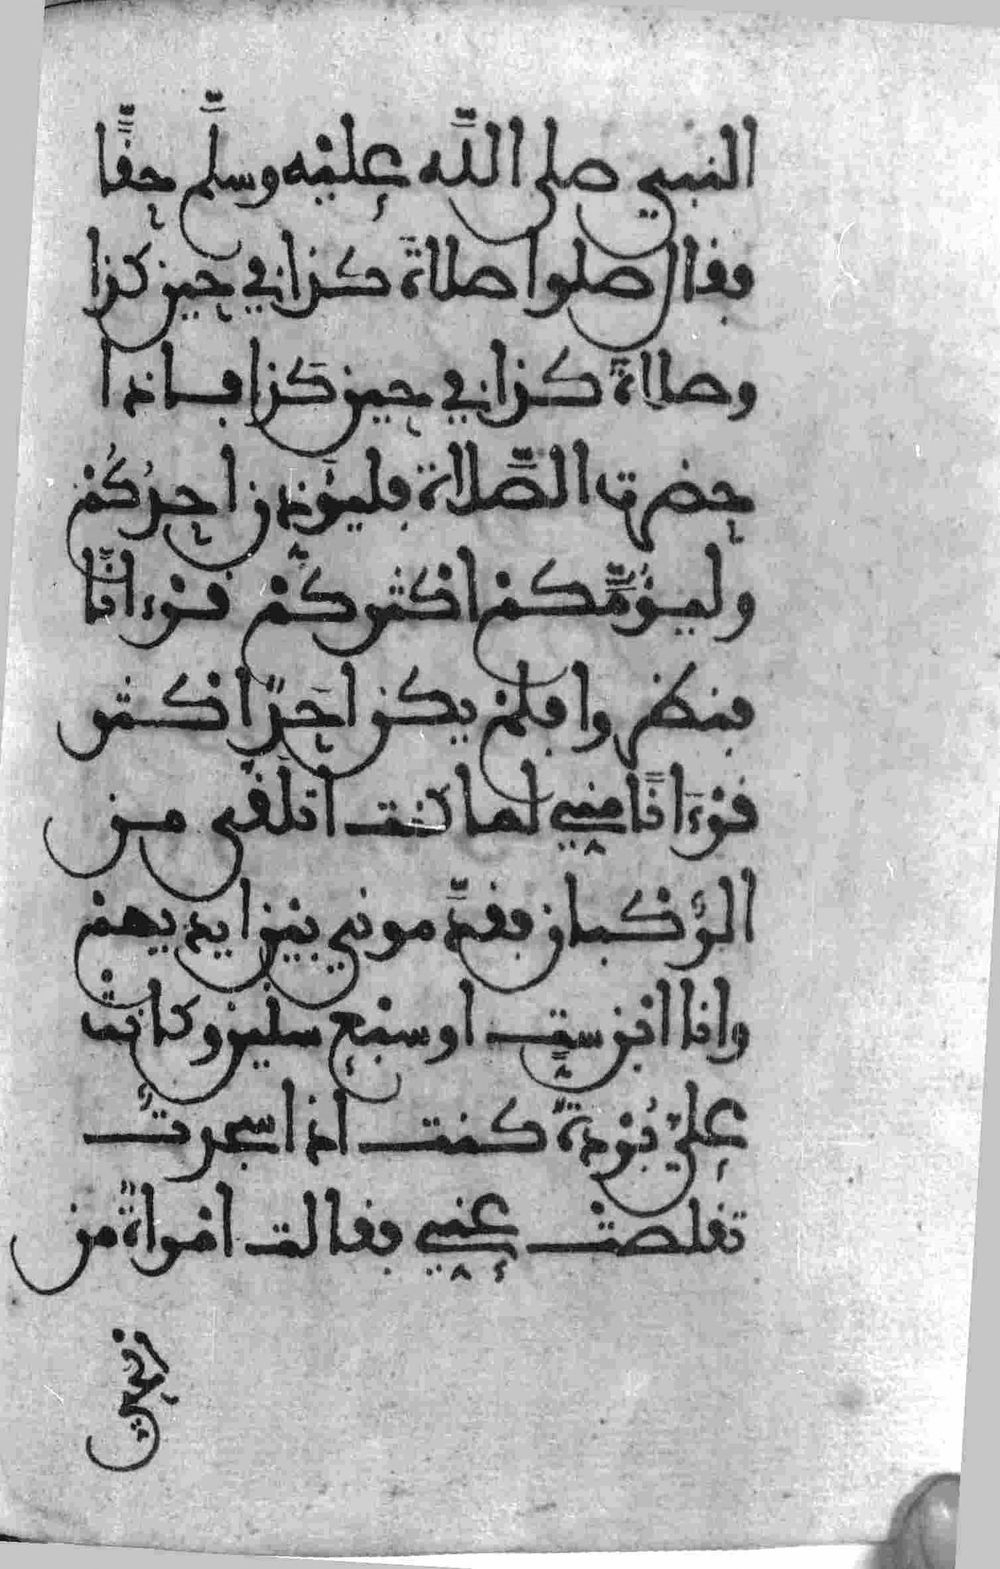 النبي صلى اللّه عليْه وسلّم حقًّا
فقال صلوا صلاةَ كذا في حين كذا
وصلاةَ كذا في حين كذا فاذا
حضرت الصّلاة فليؤذن احدُكُمْ
وليؤمَّكمْ اكثركمْ قرءانًا
فنظروا فلمْ يكن احدٌ اكثر
قرْءَانًا منّي لما كنت اتلقى من
الرُّكبان فقدّموني بيْن ايديهمْ
وانا ابن ستّ او سبْع سنين وكانتْ
عليّ بُرْدةٌ كنت اذا سجدتُ
تقلصتْ عنّي فقالت امْراةٌ من
الحي